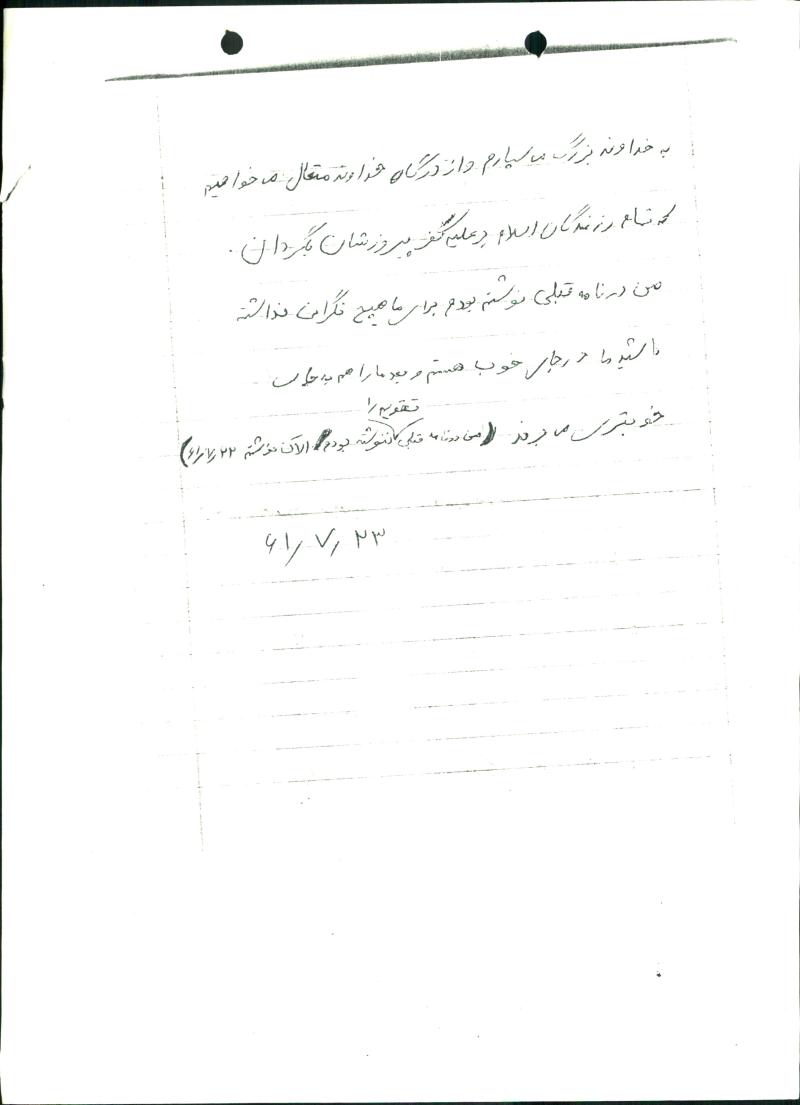 به خداوند بزرگ می سپارم و از درگاه خداوند متعال می خواهیم
که تمام رزمندگان اسلام بر علیه کفر پیروزشان بگردان .
من در نامه قبلی نوشته بودم برای ما هیچ نگرانی نداشته
باشید ما در جای خوب هستم و بعد ما را هم به جای
خوبتری می برند (من در نامه قبلی تقویم را ننوشته بودم الان نوشته ۶۱/۷/۲۲)
۶۱/۷/۲۳